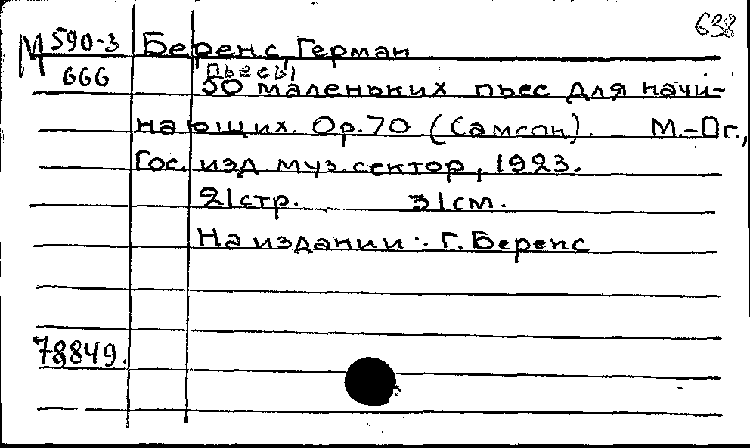 638
М 590-3 Беренс, Герман
666 Пьесы
50 маленьких пьес для начи-
нающих. Op.70 (Самсон). М.-Пг.,
Гос. изд муз. сектор, 1923.
21стр. 31см.
На издании: Г. Беренс
78849.